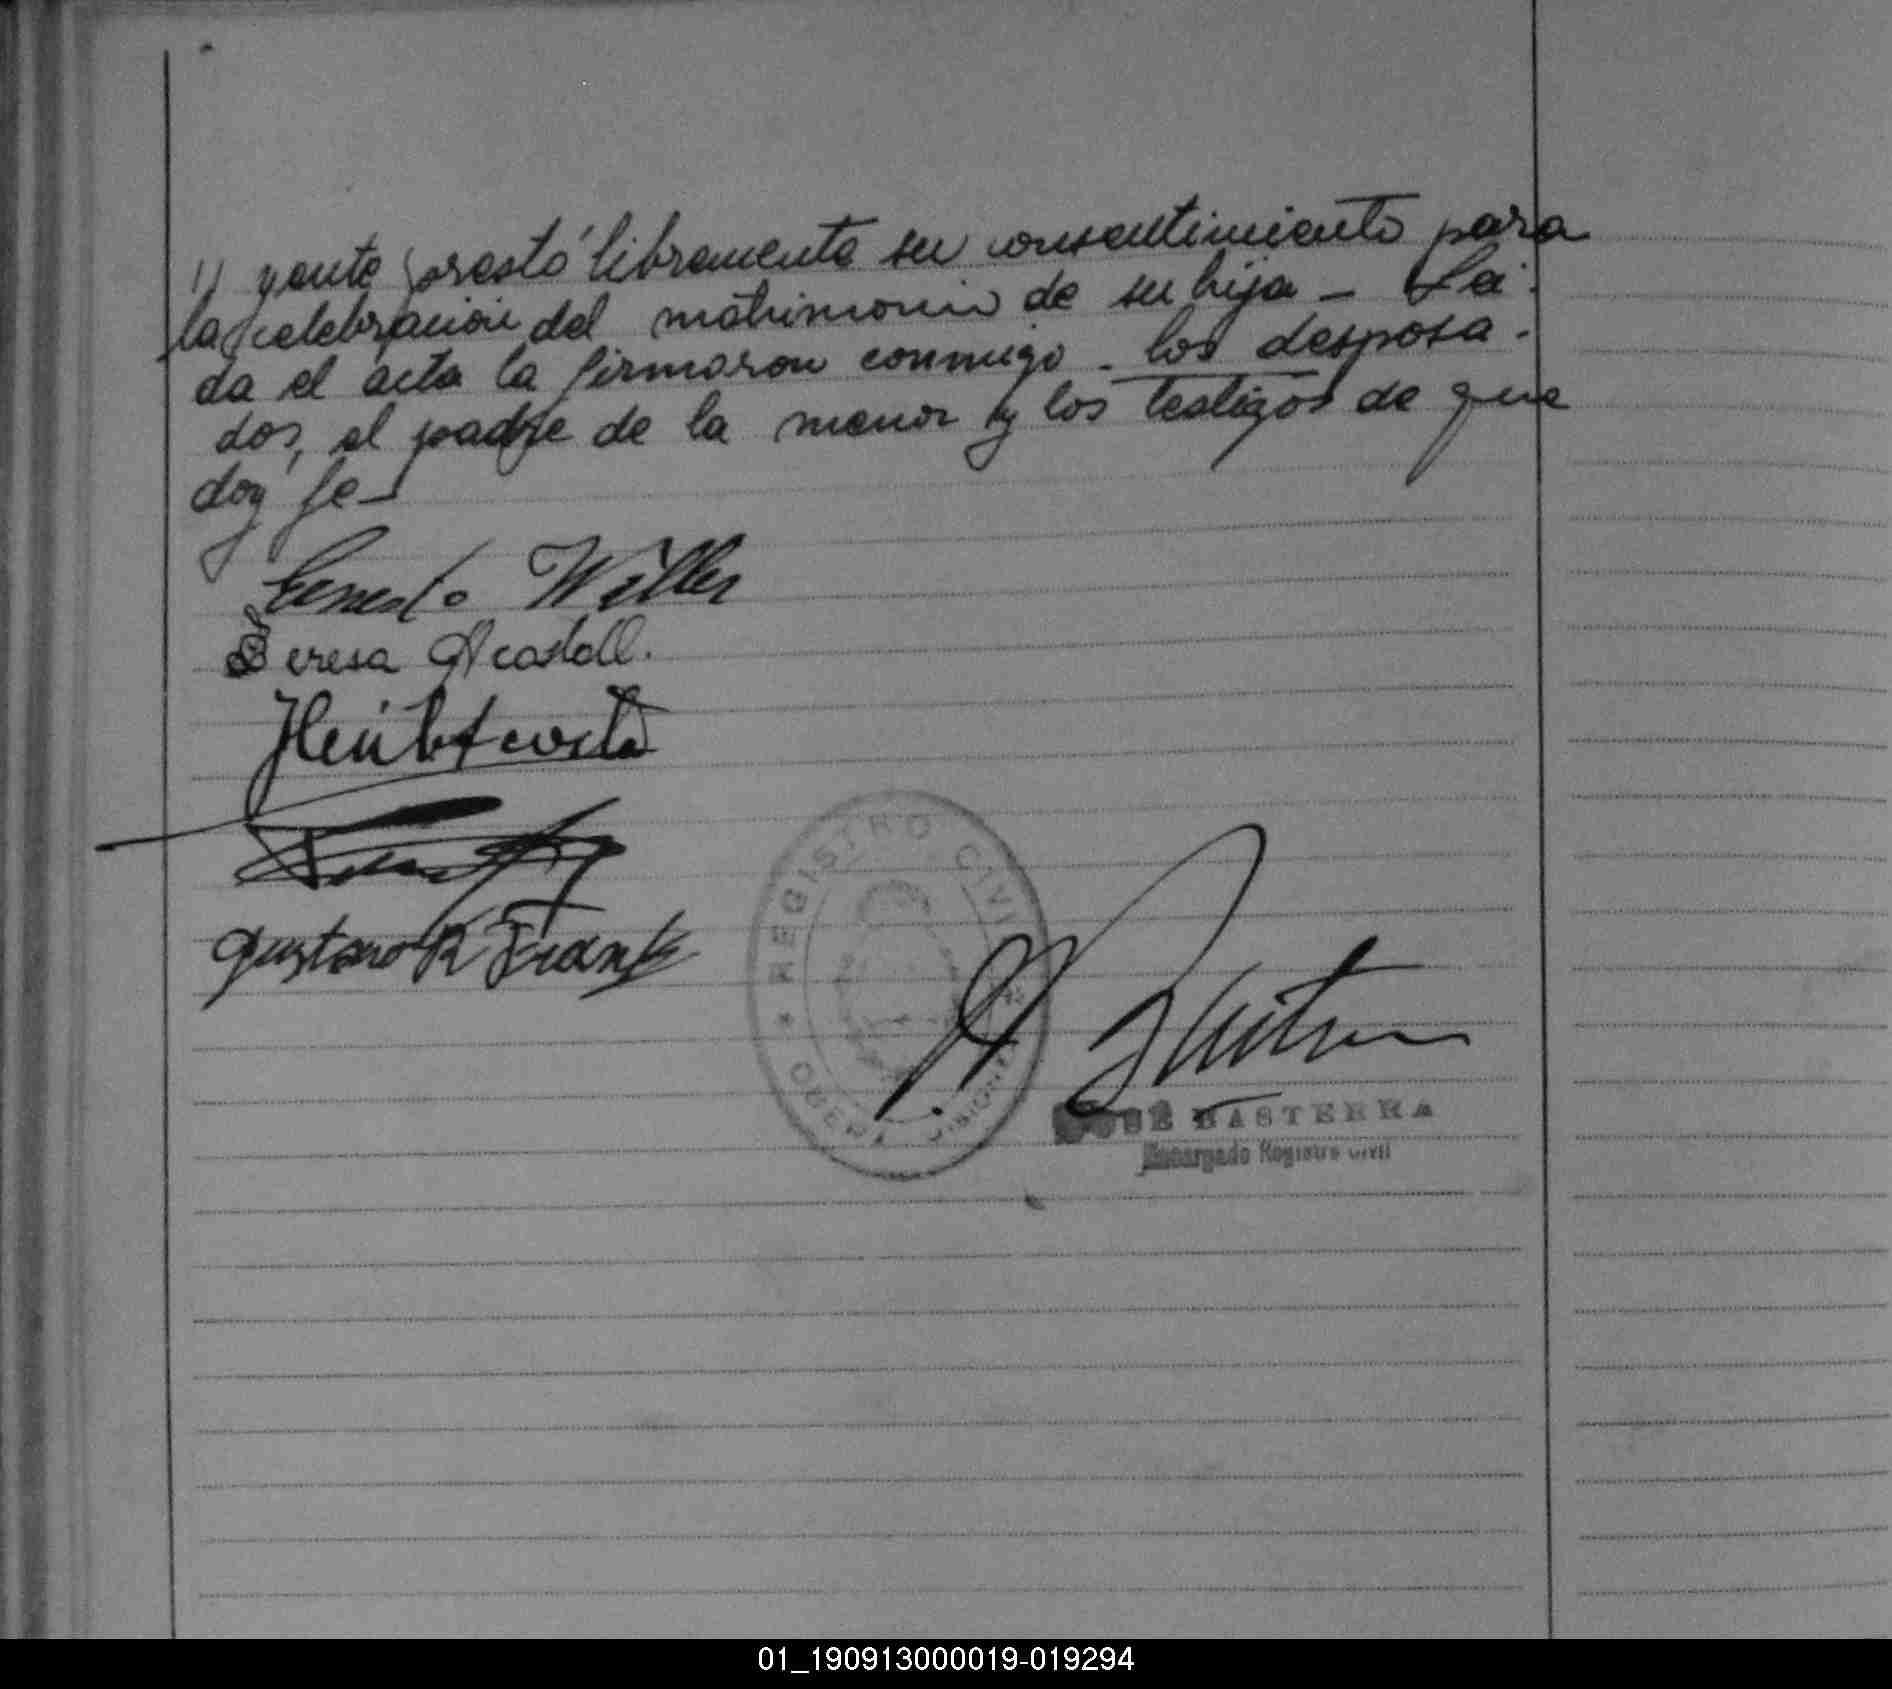 1) yente prestó libremente su consentimiento para
la celebración del matrimonio de su hija - Leí
da el acta la firmaron conmigo - los desposa-
dos, el padre de la menor y los testigos de que
doy fe-
Ernesto Willer
Teresa
Gustavo R Frank
REGISTRO CIVIL
OBERA MISIONES
JOSÉ BASTERRA
Encargado Registro Civil
01_190913000019-019294